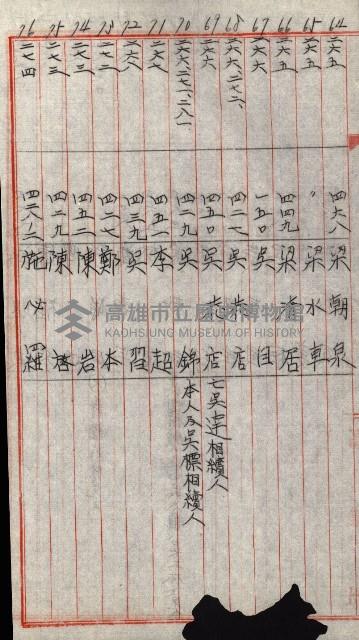 64 二六五 四六八 梁朝泉
65 二六五 〃 梁水車
66 二六五 四四九 梁 居
67 二六六 一五〇 吳 自
68 二六六、二七二、 四二七 吳 店
69 二六六 四五〇 吳志店 亡吳達相續人
70 二六六、二七一、二八一 四二九 吳 錦 本人及吳標相續人
71 二六七 四五一 李 超
72 二六八 四三九 吳 習
73 二七二 四二七 鄭 本
74 二七三 四五二 陳 岩
75 二七三 四二九 陳 啓
76 二七四 四三八 施 必 羅
高雄市立歷史博物館
KAOHSIUNG MUSEUM OF HISTORY